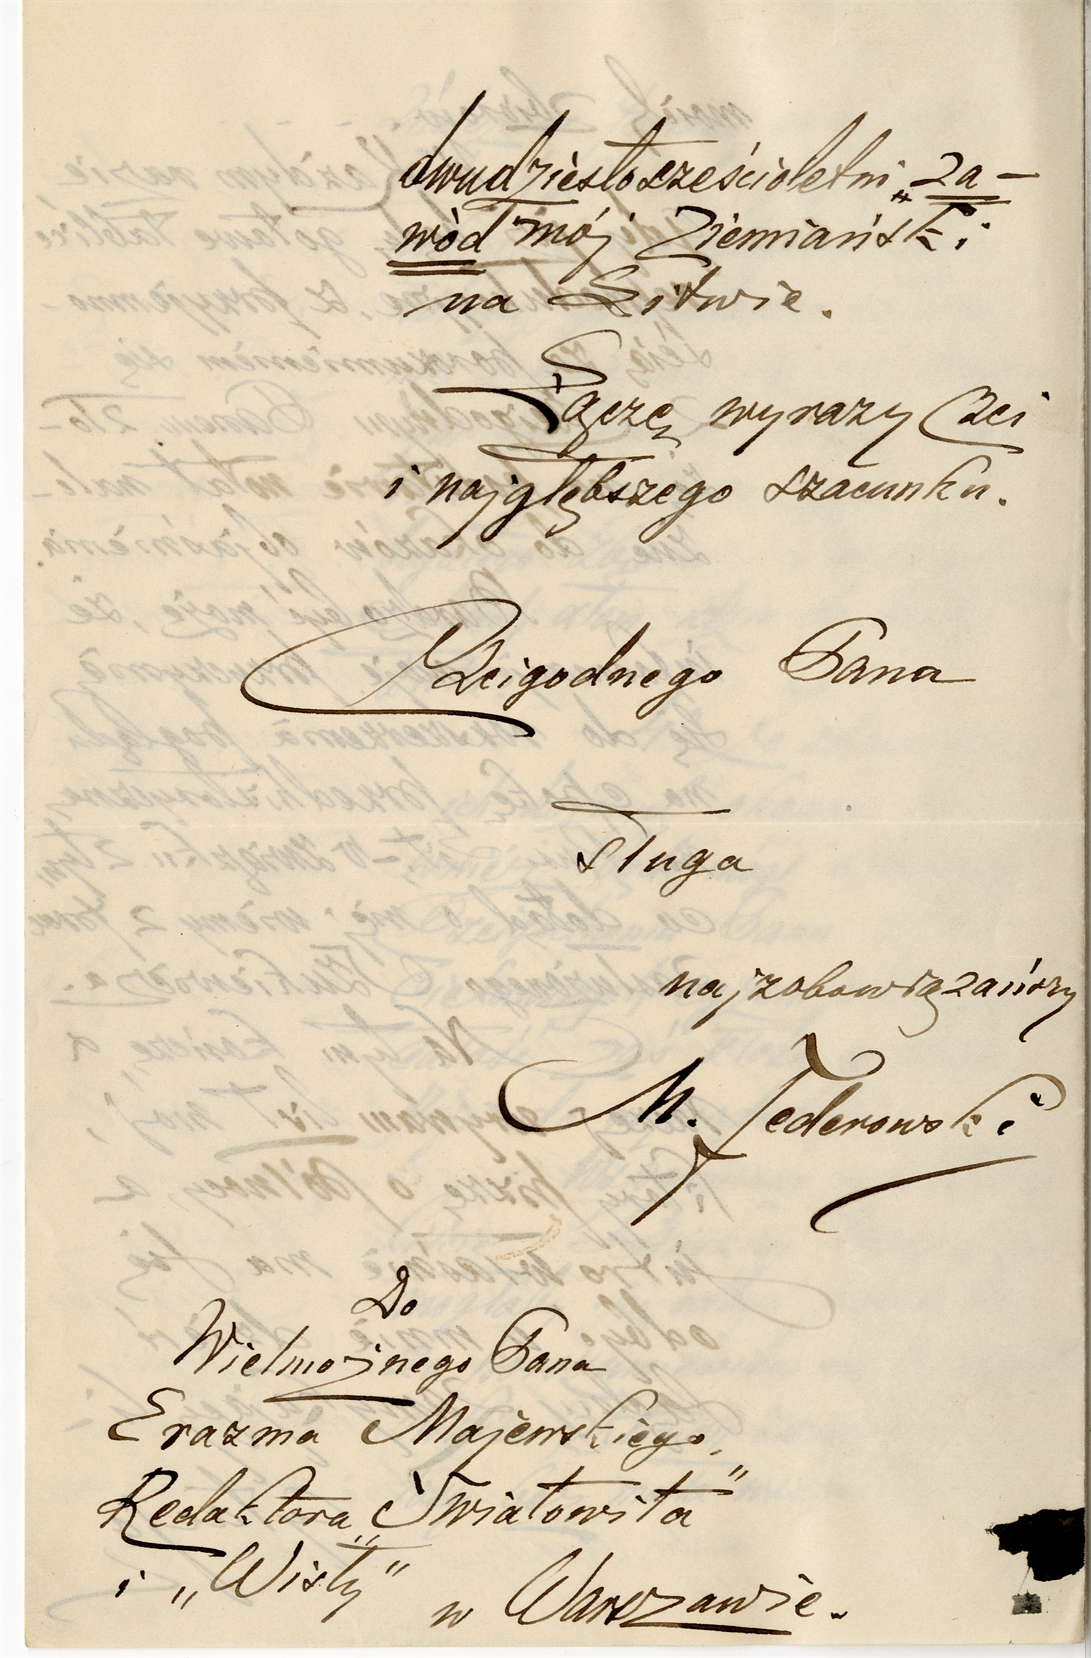 dwudziestosześcioletni „za-
wód" mój Ziemiański
na Litwie.
Łączę wyrazy Czci
i najgłębszego szacunku.
Czcigodnego Pana
sługa
najzobowiązańszy
M. Federowski
Do
Wielmożnego Pana
Erazma Majewskiego,
Redaktora „Światowita"
i „Wisły"
w Warszawie.